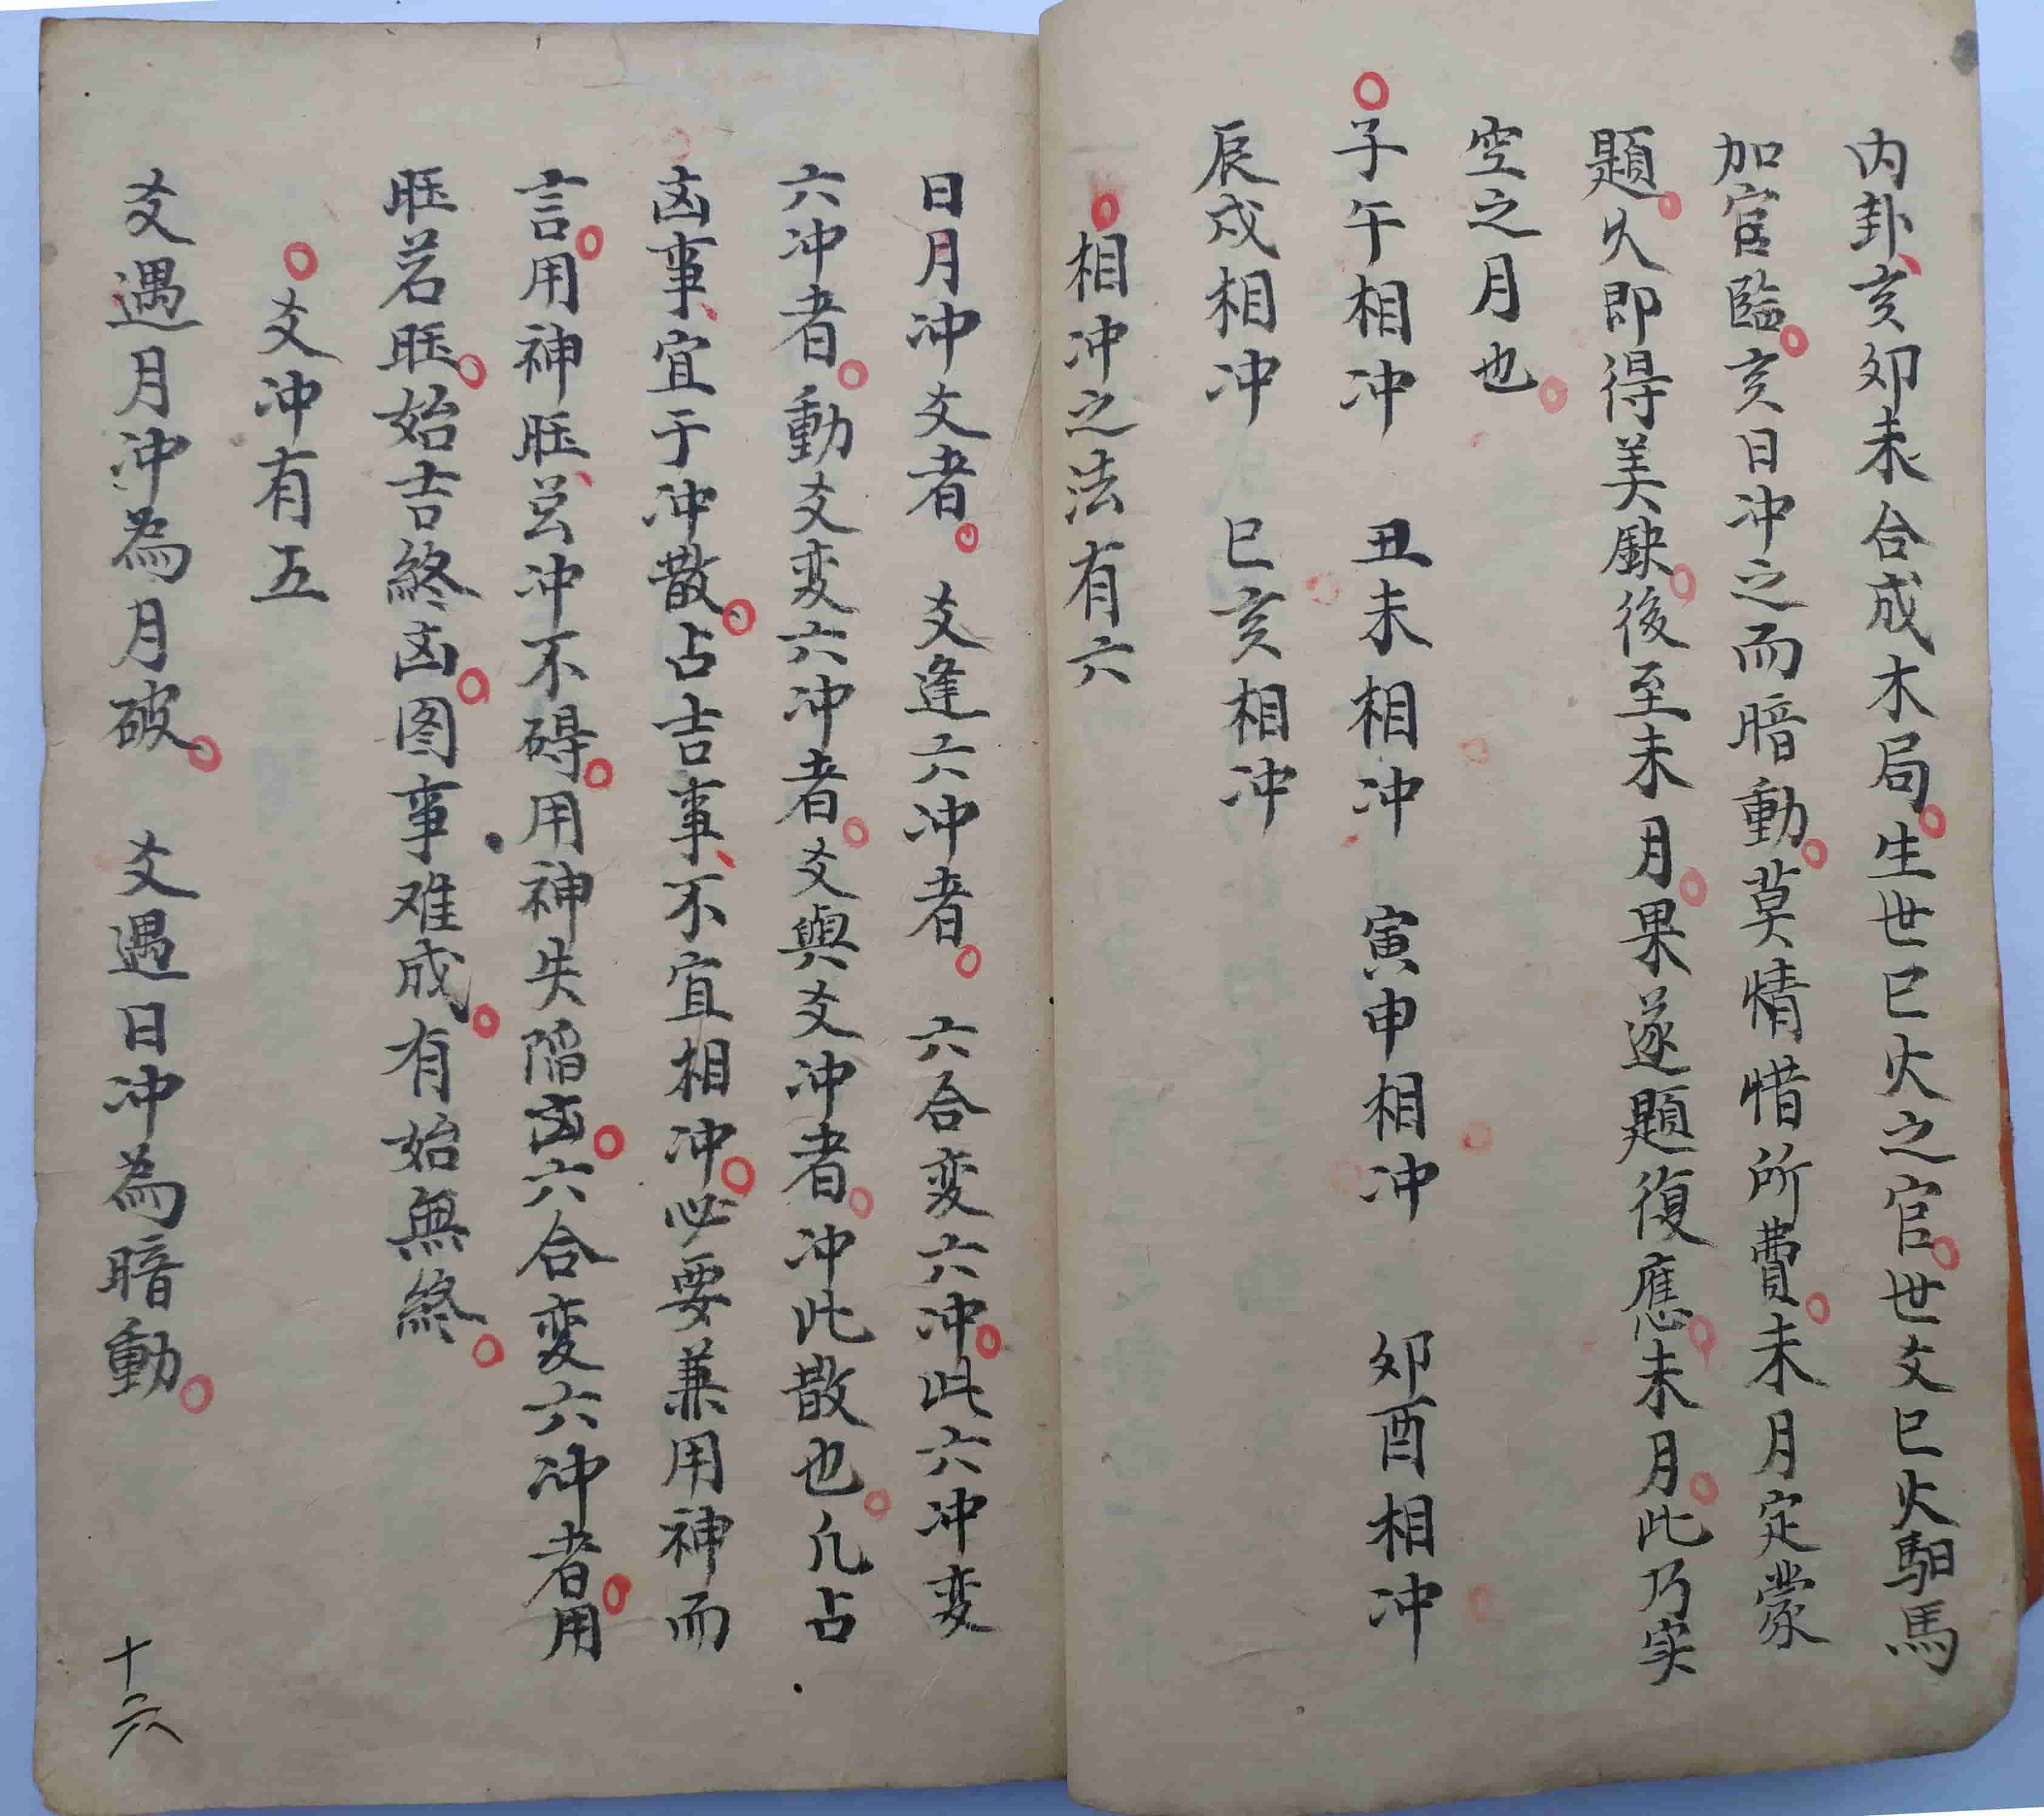 内卦亥夘未合成木局生世巳火之官世爻巳火馹馬
加官臨亥日冲之而暗動莫情惜所費未月定蒙
題火即得美缺後至未月果遂題復應未月此乃实
空之月也
子午相冲 丑未相冲 寅申相冲 夘酉相冲
辰戌相冲 巳亥相冲
相冲之法有六
日月冲爻者 爻逢六冲者 六合变六冲此六冲变
六冲者動爻变六冲者爻與爻冲者冲此散也凡占
凶事宜于冲散占吉事不宜相冲必要兼用神而
言用神旺兦冲不碍用神失陷凶六合变六冲者用
旺若旺始吉終凶图事难成有始無終
爻冲有五
爻遇月冲為月破 爻遇日冲為暗動
十六